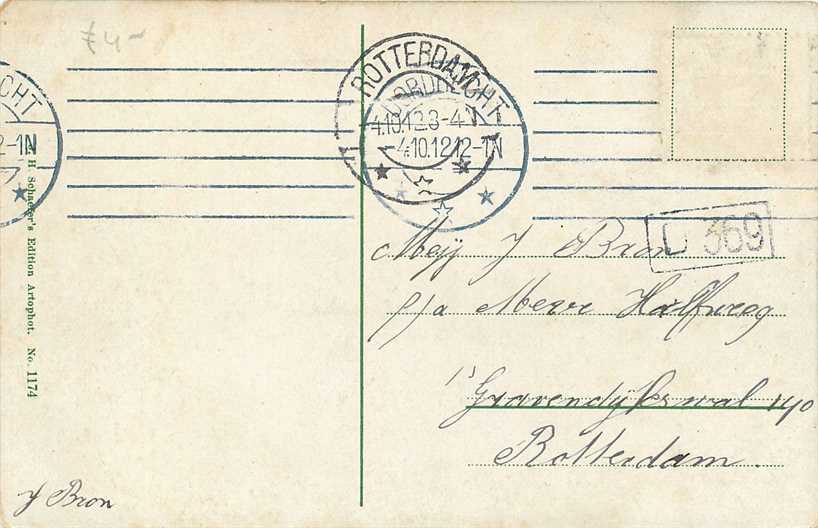 f 4-
CHT
2-1N
ROTTERDAM
DORDRECHT
4.10.12 3-4
4.10.12 12-1N
L 369
Mejj J Bron
p/a Mevr Halfweg
's Gravendijkswal 140
Rotterdam.
J Bron
H Schaefer's Edition Artophot. No. 1174